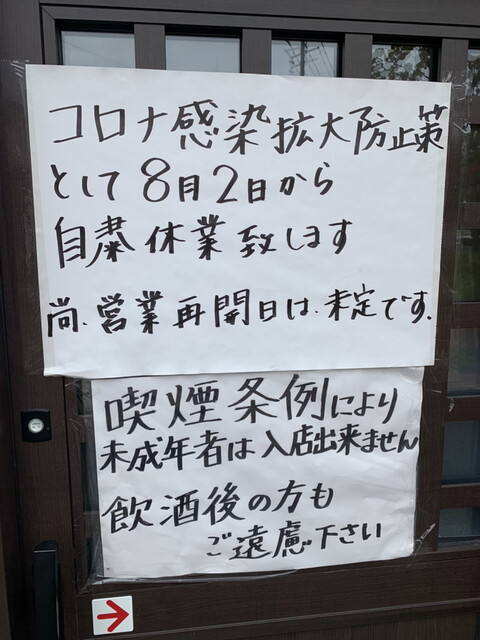 コロナ感染拡大防止策
として8月2日から
自粛休業致します
尚、営業再開日は、未定です、
喫煙条例により
未成年者は入店出来ません
飲酒後の方も
ご遠慮下さい